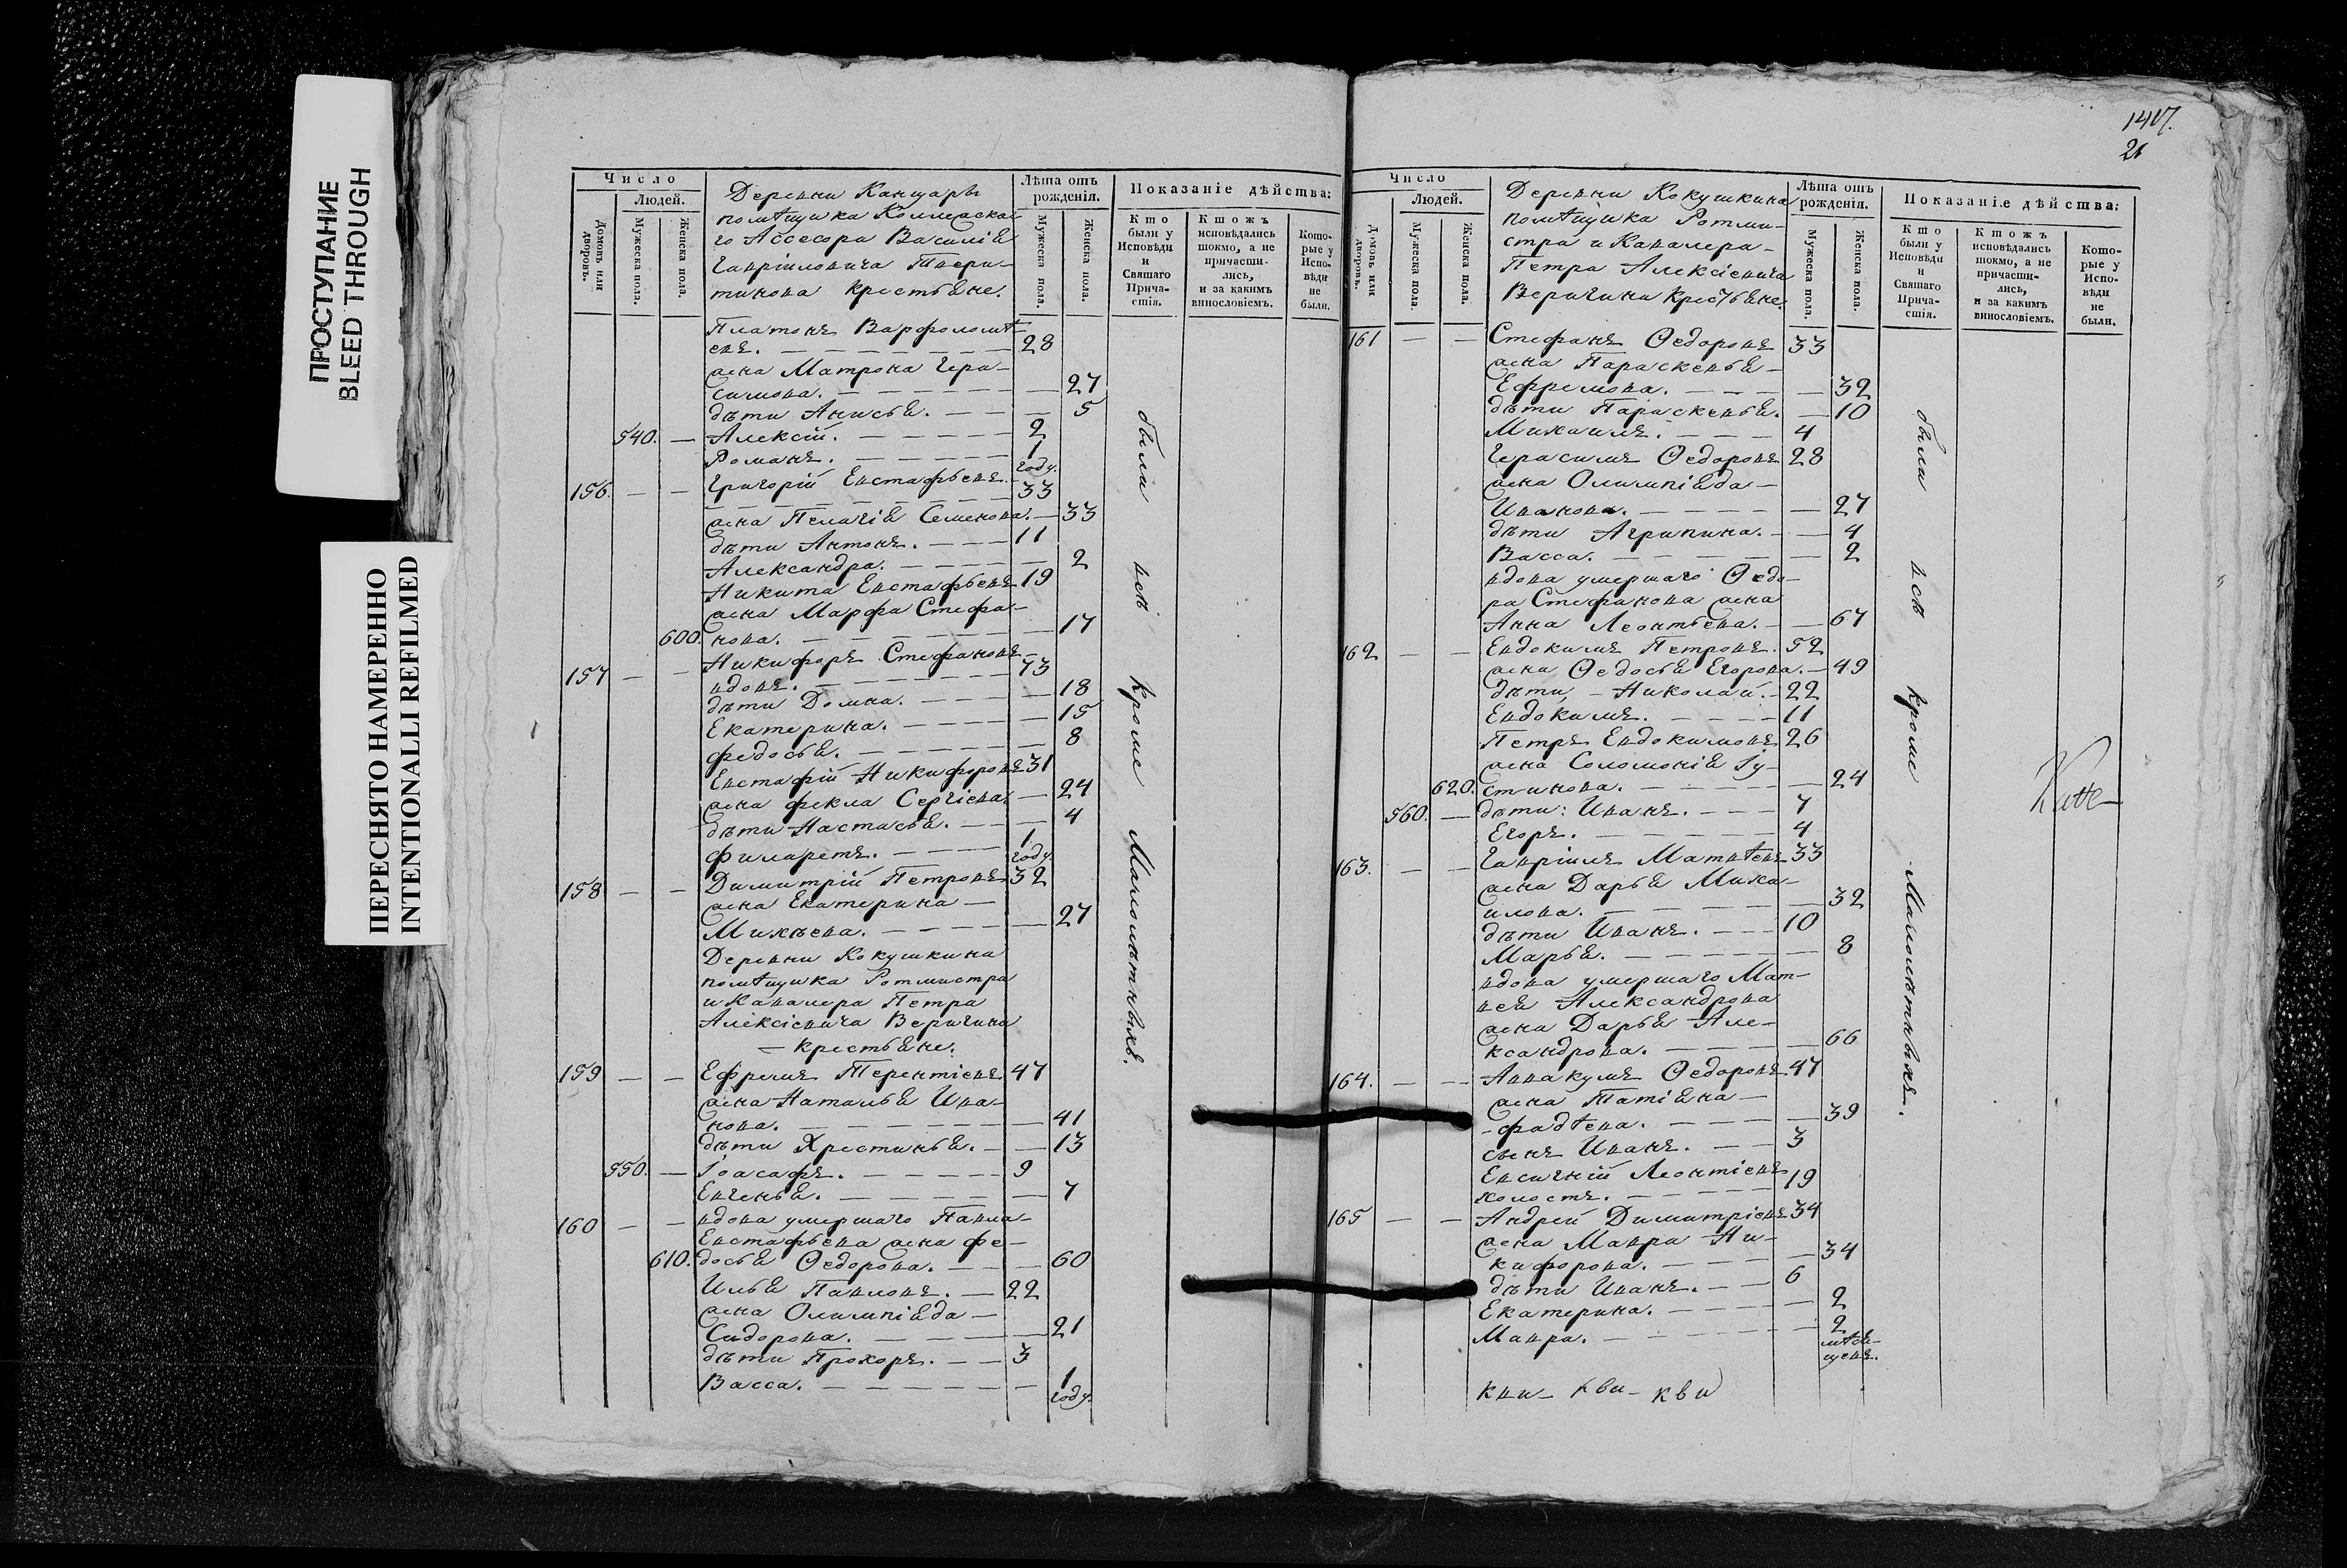 ПРОСТУПАНИЕ
BLEED THROUGH
ПЕРЕСНЯТО НАМЕРЕННО
INTENTIONALLI REFILMED
Число
Людей.
Домовъ или дворовъ.
Мужеска пола.
Женска пола.
Деревни Канцары
помѣщика Коллежска-
го Ассесора Василія
Гавріиловича Твери-
тинова крестьяне.
Лѣта отъ рожденія.
Мужеска пола.
Женска пола.
Показаніе дѣйства:
Кто были у Исповѣди и Святаго Причастія.
Ктожъ исповѣдались токмо, а не причастились, и за какимъ винословіемъ.
Которые у Исповѣди не были.
Платонъ Варфоломѣ-
евъ. 28
жена Матрона Гера-
симова. 27
дѣти Анисья. 5
540. Алексій. 2
Романъ. 1 году.
156. Григорій Евстафьевъ. 33
жена Пелагія Семенова. 33
дѣти Антонъ. 11
Александра. 2
Никита Евстафьевъ 19
жена Марфа Стефа-
600. нова. 17
157 Никифоръ Стефановъ
вдовъ. 73
дѣти Домна. 18
Екатерина. 15
федосья. 8
Евстафій Никифоровъ 31
жена фекла Сергіева. 24
дѣти Настасья. 4
Филаретъ. 1 году.
158 Димитрій Петровъ 32
жена Екатерина
Михѣева. 27
Деревни Кокушкина
помѣщика Ротмистра
и Кавалера Петра
Алексіевича Веригина
крестьяне.
159 Ефремъ Терентіевъ. 47
жена Наталья Ива-
нова. 41
дѣти Христинья. 13
550. Іоасафъ. 9
Евгенья. 7
160 вдова умершаго Павла
Евстафьева жена фе-
610. досья Ѳедорова. 60
Илья Павловъ. 22
жена Олимпіяда
Сидорова. 21
дѣти Прохоръ. 3
Васса. 1 году.
были всѣ кромѣ Малолѣтныхъ.
1417.
21
Число
Людей.
Домовъ или дворовъ.
Мужеска пола.
Женска пола.
Деревни Кокушкина
помѣщика Ротми-
стра и Кавалера
Петра Алексіевича
Веригина крестьяне.
Лѣта отъ рожденія.
Мужеска пола.
Женска пола.
Показаніе дѣйства:
Кто были у Исповѣди и Святаго Причастія.
Ктожъ исповѣдались токмо, а не причастились, и за какимъ винословіемъ.
Которые у Исповѣди не были.
161 Стефанъ Ѳедоровъ 33
жена Параскевья
Ефремова. 32
дѣти Параскевья. 10
Михаилъ. 4
Герасимъ Ѳедоровъ 28
жена Олимпіяда
Иванова. 27
дѣти Агрипина. 4
Васса. 2
вдова умершаго Ѳедо-
ра Стефанова жена
Анна Леонтьева. 67
162 Евдокимъ Петровъ. 52
жена Ѳедосья Егорова. 49
дѣти, Николай. 22
Евдокимъ. 11
Петръ Евдокимовъ 26
жена Соломонія Іу-
620. стинова. 24
560. дѣти: Иванъ. 7
Егоръ. 4
163. Гавріилъ Матвѣевъ 33
жена Дарья Миха-
илова. 32
дѣти Иванъ. 10
Марья. 8
вдова умершаго Мат-
вея Александрова
жена Дарья Але-
ксандрова. 66
164. Аввакумъ Ѳедоровъ 47
жена Татіяна
фадѣева. 39
сынъ Иванъ. 3
Евсигній Леонтіевъ
холостъ. 19
165 Андрей Димитріевъ 34
жена Мавра Ни-
кифорова. 34
дѣти Иванъ. 6
Екатерина. 2
Мавра. 2 мѣся-
цевъ.
были всѣ кромѣ Малолѣтныхъ.